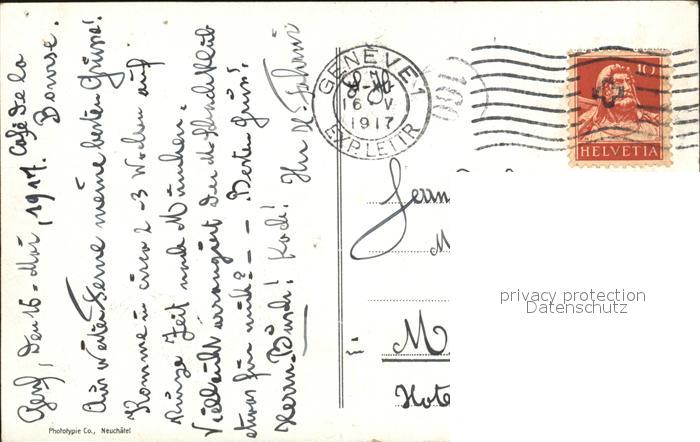 Genf, Den 16 - Mai, 1917. Café de la
Bourse.
Aus weiter Ferne meine besten Grüsse!
Komme in circa 2-3 Wochen auf
kurze Zeit nach München.
Vielleicht arrangiert der Schachklub
etwas für mich? - - Besten Gruss!
Herrn Kodi! Ihr
GENÈVE 1
16 V
1917
EXP. LETTR
10
HELVETIA
Herrn
M
in M
Hote
privacy protection
Datenschutz
Phototypie Co., Neuchâtel